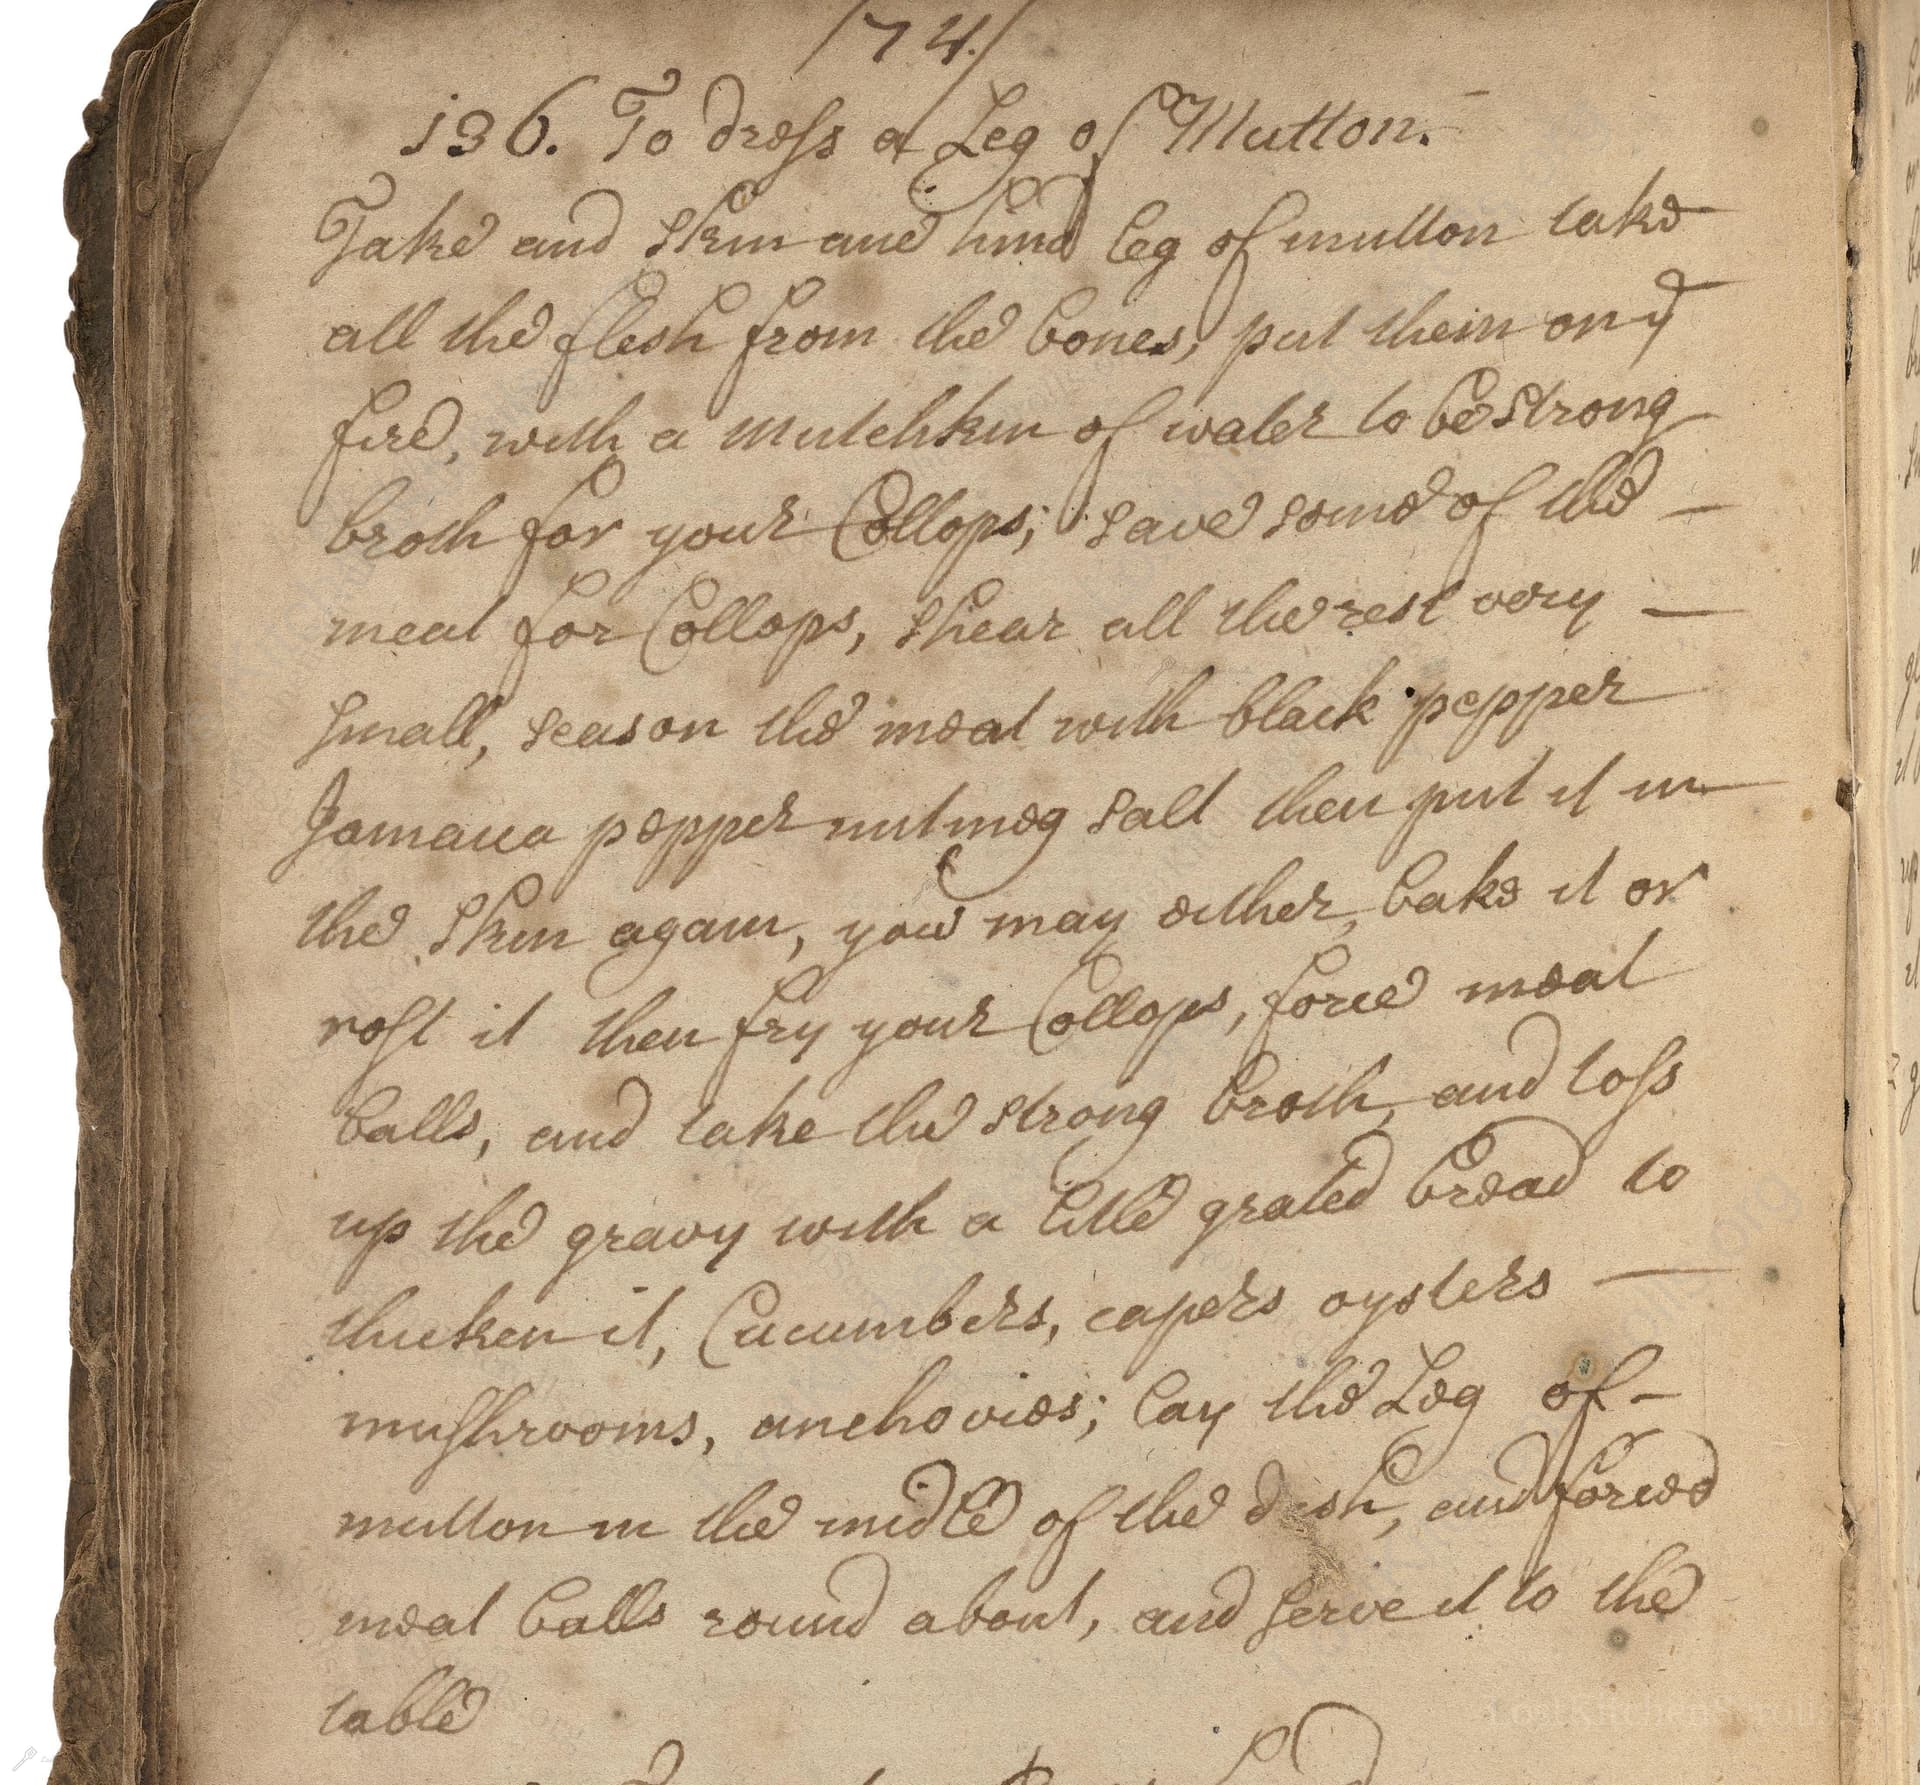 /74/
136. To dress a Leg of Mutton.
Take and skin ane hind leg of mutton take
all the flesh from the bones, put them on ye
fire, with a mutchkin of water to be strong
broth for your Collops; save some of the
meat for Collops, shear all the rest very
small, season the meat with black pepper
Jamaica pepper nutmeg salt then put it in
the skin again, you may either bake it or
rost it then fry your Collops, force meat
balls, and take the strong broth, and toss
up the gravy with a little grated bread to
thicken it, Cucumbers, capers oysters
mushrooms, anchovies; lay the Leg of
mutton in the midle of the dish, and forced
meat balls round about, and serve it to the
table